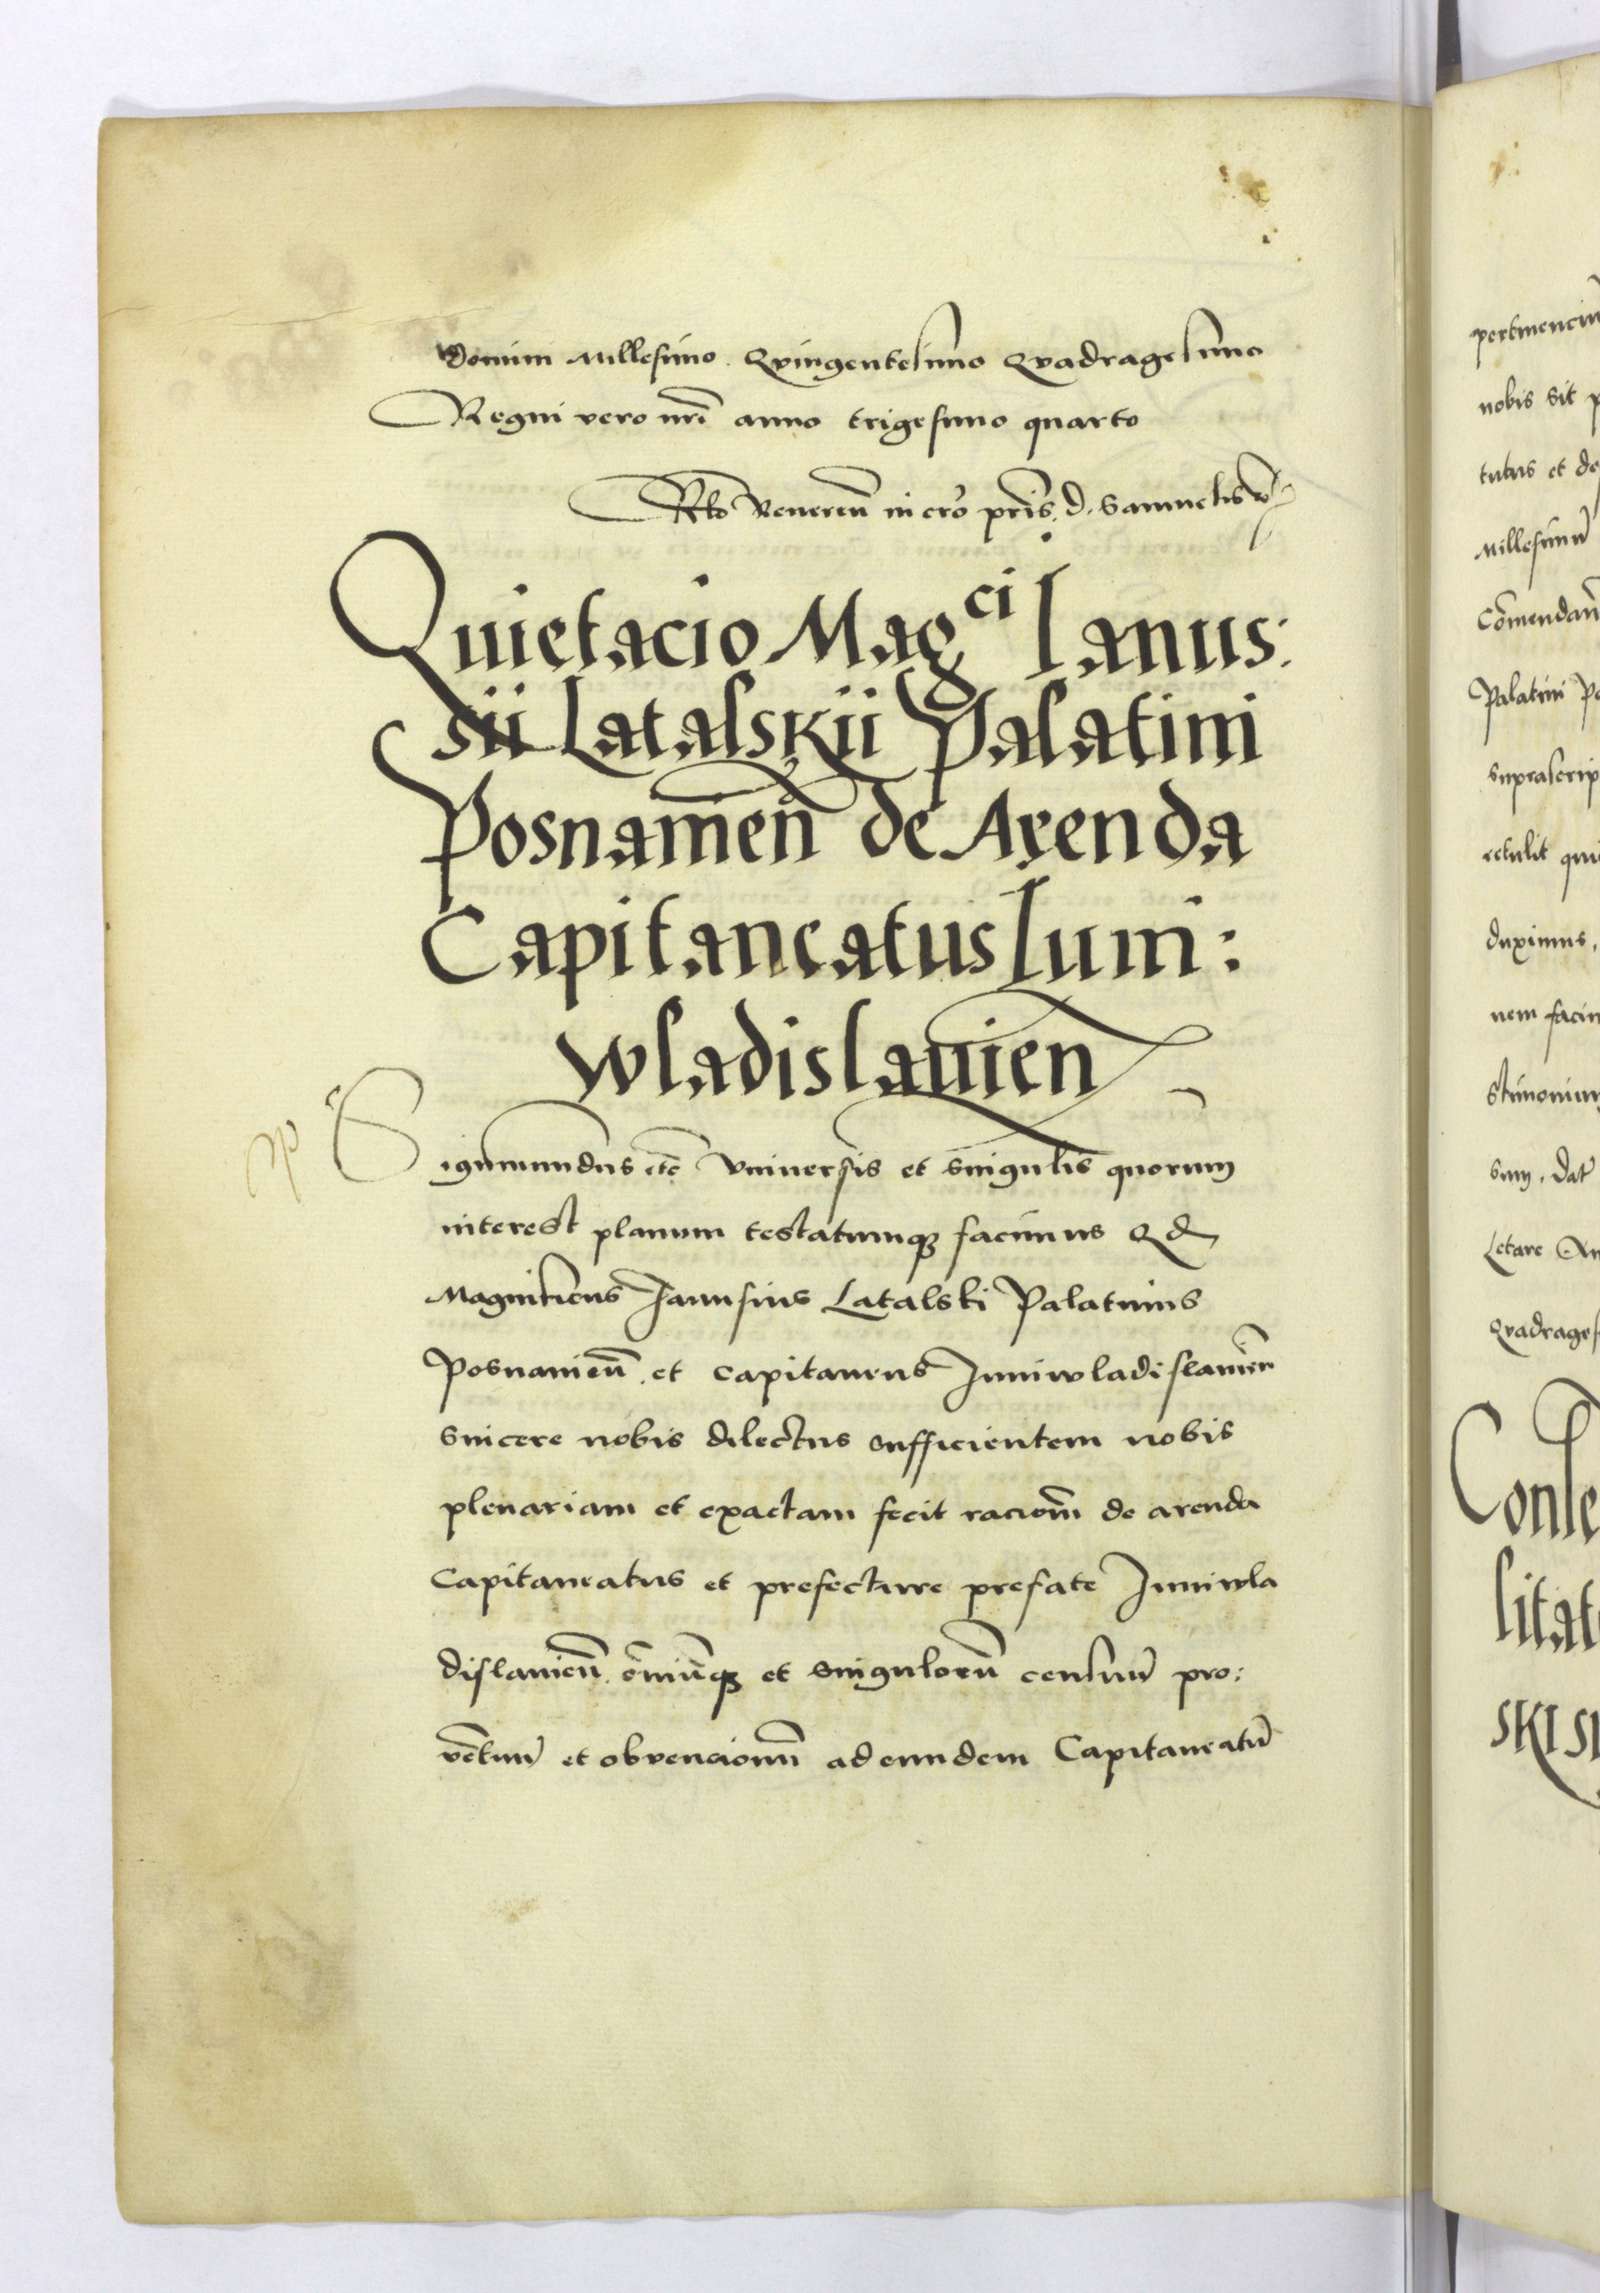 domini Millesimo Quingentesimo Quadragesimo
Regni vero nrī anno trigesimo quarto
Rlō Reueren̄ in crō prīs d. Samuelis
Quietacio Mag^ci Ianus:
sii Latalskii Palatini
Posnamen̄ de Arenda
Capitaneatus Iuni:
wladislauien̄
Sigismundus etc̄ Vniuersis et singulis quorum
interest planum testatumq3 facimus Qd
Magnificus Janusius Latalski Palatinus
Posnanien̄ et capitaneus Juniwladislauien̄
sincere nobis dilectus sufficientem nobis
plenariam et exactam fecit racionē de arenda
Capitaneatus et prefecture prefate Juniwla
dislauien̄ om̄iūq3 et singulorū censuū pro:
uētuū et obuencionū ad eundem Capitaneatū
pertinenciū
nobis sit
tutus et de
Millesimū
Cōmendan̄
Palatini Po
suprascrip
retulit qui
duximus,
nem facim
stimonium
sum. Dat
Letare An
Quadrages
Conse
litat
SKI SI